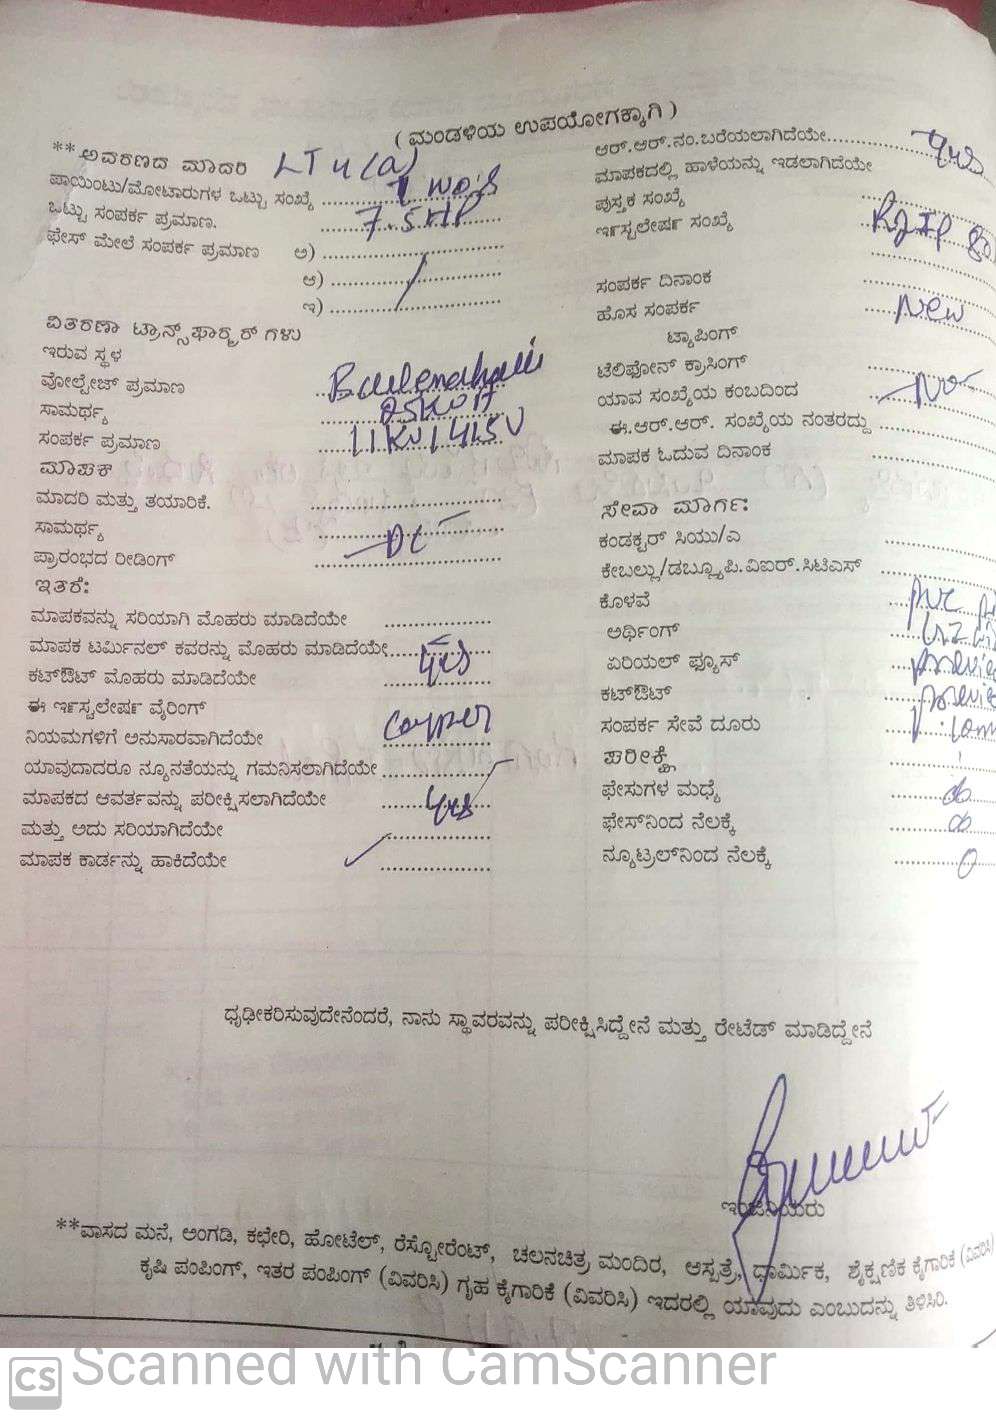 ( ಮಂಡಳಿಯ ಉಪಯೋಗಕ್ಕಾಗಿ )
**ಅವರಣದ ಮಾದರಿ LT 4(a)
ಪಾಯಿಂಟು/ಮೋಟಾರುಗಳ ಒಟ್ಟು ಸಂಖ್ಯೆ ........ 1 No's
ಒಟ್ಟು ಸಂಪರ್ಕ ಪ್ರಮಾಣ. ........ 7.5HP
ಫೇಸ್ ಮೇಲೆ ಸಂಪರ್ಕ ಪ್ರಮಾಣ ಅ) ........
ಆ) ........
ಇ) ........
ವಿತರಣಾ ಟ್ರಾನ್ಸ್‌ಫಾರ್‍ಮರ್ ಗಳು
ಇರುವ ಸ್ಥಳ
ವೋಲ್ಟೇಜ್ ಪ್ರಮಾಣ ........
ಸಾಮರ್ಥ್ಯ ........ 25KV A
ಸಂಪರ್ಕ ಪ್ರಮಾಣ ........ 11KV/415V
ಮಾಪಕ
ಮಾದರಿ ಮತ್ತು ತಯಾರಿಕೆ. ........
ಸಾಮರ್ಥ್ಯ ........ DC
ಪ್ರಾರಂಭದ ರೀಡಿಂಗ್ ........
ಇತರೆ:
ಮಾಪಕವನ್ನು ಸರಿಯಾಗಿ ಮೊಹರು ಮಾಡಿದೆಯೇ ........
ಮಾಪಕ ಟರ್ಮಿನಲ್ ಕವರನ್ನು ಮೊಹರು ಮಾಡಿದೆಯೇ ........ yes
ಕಟ್‌ಔಟ್ ಮೊಹರು ಮಾಡಿದೆಯೇ ........
ಈ ಇರ್ನ್‌ಸ್ಟಲೇಷರ್ನ್ ವೈರಿಂಗ್
ನಿಯಮಗಳಿಗೆ ಅನುಸಾರವಾಗಿದೆಯೇ ........ copper
ಯಾವುದಾದರೂ ನ್ಯೂನತೆಯನ್ನು ಗಮನಿಸಲಾಗಿದೆಯೇ ........
ಮಾಪಕದ ಆವರ್ತವನ್ನು ಪರೀಕ್ಷಿಸಲಾಗಿದೆಯೇ ........ yes
ಮತ್ತು ಅದು ಸರಿಯಾಗಿದೆಯೇ ........
ಮಾಪಕ ಕಾರ್ಡನ್ನು ಹಾಕಿದೆಯೇ ........
ಆರ್.ಆರ್.ನಂ.ಬರೆಯಲಾಗಿದೆಯೇ ........ yes
ಮಾಪಕದಲ್ಲಿ ಹಾಳೆಯನ್ನು ಇಡಲಾಗಿದೆಯೇ
ಪುಸ್ತಕ ಸಂಖ್ಯೆ ........
ಇರ್ನ್‌ಸ್ಟಲೇಷರ್ನ್ ಸಂಖ್ಯೆ ........
ಸಂಪರ್ಕ ದಿನಾಂಕ ........
ಹೊಸ ಸಂಪರ್ಕ ........ New
ಟ್ಯಾಪಿಂಗ್
ಟೆಲಿಫೋನ್ ಕ್ರಾಸಿಂಗ್ ........
ಯಾವ ಸಂಖ್ಯೆಯ ಕಂಬದಿಂದ ........ No
ಈ.ಆರ್.ಆರ್. ಸಂಖ್ಯೆಯ ನಂತರದ್ದು ........
ಮಾಪಕ ಓದುವ ದಿನಾಂಕ ........
ಸೇವಾ ಮಾರ್ಗ:
ಕಂಡಕ್ಟರ್ ಸಿಯು/ಎ ........
ಕೇಬಲ್ಲು/ಡಬ್ಲ್ಯೂಪಿ.ವಿಐಆರ್.ಸಿಟಿಎಸ್ ........
ಕೊಳವೆ ........ PVC
ಅರ್ಥಿಂಗ್ ........
ಏರಿಯಲ್ ಫ್ಯೂಸ್ ........
ಕಟ್‌ಔಟ್ ........
ಸಂಪರ್ಕ ಸೇವೆ ದೂರು ........
ಪರೀಕ್ಷೆ ........
ಫೇಸುಗಳ ಮಧ್ಯೆ ........ ∞
ಫೇಸ್‌ನಿಂದ ನೆಲಕ್ಕೆ ........ ∞
ನ್ಯೂಟ್ರಲ್‌ನಿಂದ ನೆಲಕ್ಕೆ ........ 0
ಧೃಢೀಕರಿಸುವುದೇನೆಂದರೆ, ನಾನು ಸ್ಥಾವರವನ್ನು ಪರೀಕ್ಷಿಸಿದ್ದೇನೆ ಮತ್ತು ರೇಟೆಡ್ ಮಾಡಿದ್ದೇನೆ
ಇಂಜಿನಿಯರು
**ವಾಸದ ಮನೆ, ಅಂಗಡಿ, ಕಛೇರಿ, ಹೋಟೆಲ್, ರೆಸ್ಟೋರೆಂಟ್, ಚಲನಚಿತ್ರ ಮಂದಿರ, ಆಸ್ಪತ್ರೆ, ಧಾರ್ಮಿಕ, ಶೈಕ್ಷಣಿಕ ಕೈಗಾರಿಕೆ (ವಿವರಿಸಿ)
ಕೃಷಿ ಪಂಪಿಂಗ್, ಇತರ ಪಂಪಿಂಗ್ (ವಿವರಿಸಿ) ಗೃಹ ಕೈಗಾರಿಕೆ (ವಿವರಿಸಿ) ಇದರಲ್ಲಿ ಯಾವುದು ಎಂಬುದನ್ನು ತಿಳಿಸಿರಿ.
CS Scanned with CamScanner